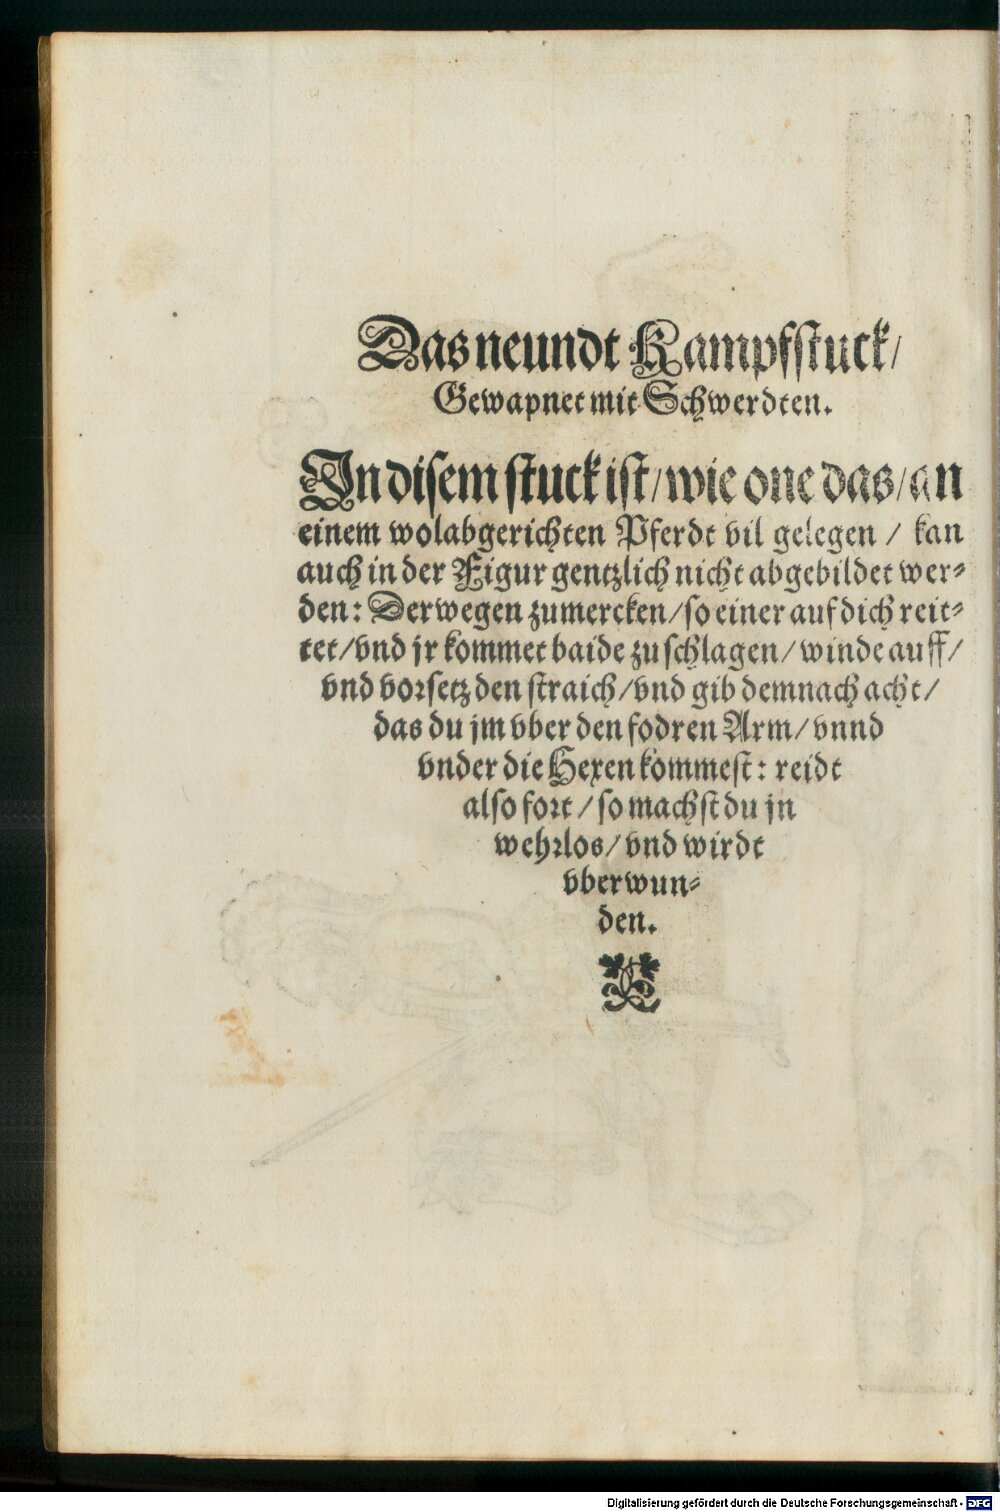 Das neundt Kampfstuck/
Gewapnet mit Schwerdten.
In disem stuck ist/ wie one das/ an
einem wolabgerichten Pferdt vil gelegen / kan
auch in der Figur gentzlich nicht abgebildet wer⸗
den: Derwegen zumercken/ so einer auf dich reit⸗
tet/ vnd jr kommet baide zu schlagen/ winde auff/
vnd vorsetz den straich/ vnd gib demnach acht/
das du jm vber den fodren Arm/ vnnd
vnder die Hexen kommest: reidt
also fort / so machst du jn
wehrlos/ vnd wirdt
vberwun⸗
den.
Digitalisierung gefördert durch die Deutsche Forschungsgemeinschaft - DFG